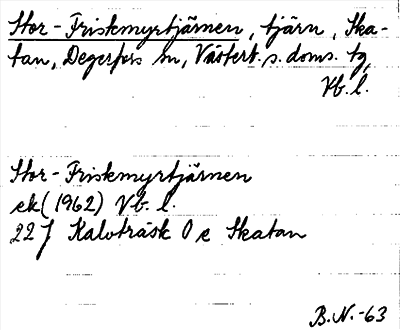 Stor-Friskmyrtjärnen, tjärn, Ska-
tan, Degerfors sn, Västerb. s. doms. tg,
Vb. l.
Stor-Friskmyrtjärnen
ek (1962) Vb. l.
22 J Kalvträsk O e Skatan
B.N.-63